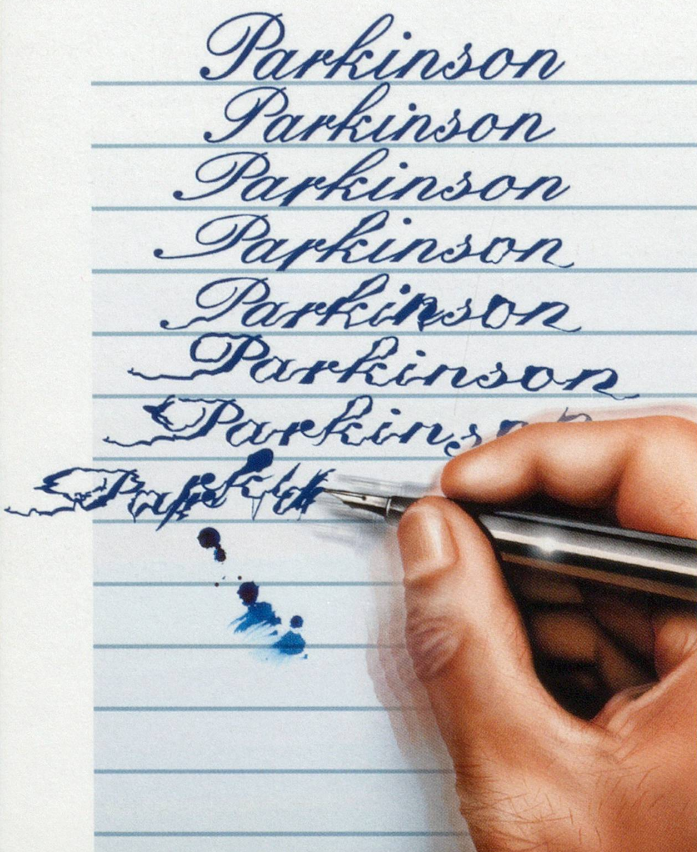 Parkinson
Parkinson
Parkinson
Parkinson
Parkinson
Parkinson
Parkinson